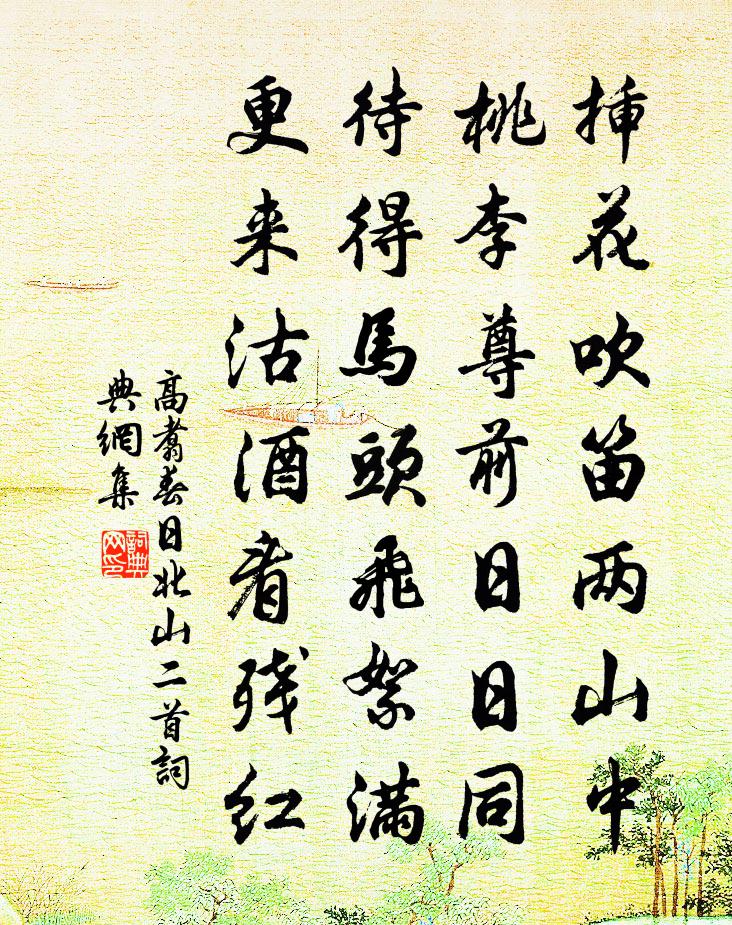 挿花吹笛两山中
桃李尊前日日同
待得馬頭飛絮滿
更来沽酒看残红
高翥春日北山二首詞
典網集
詞典
网印